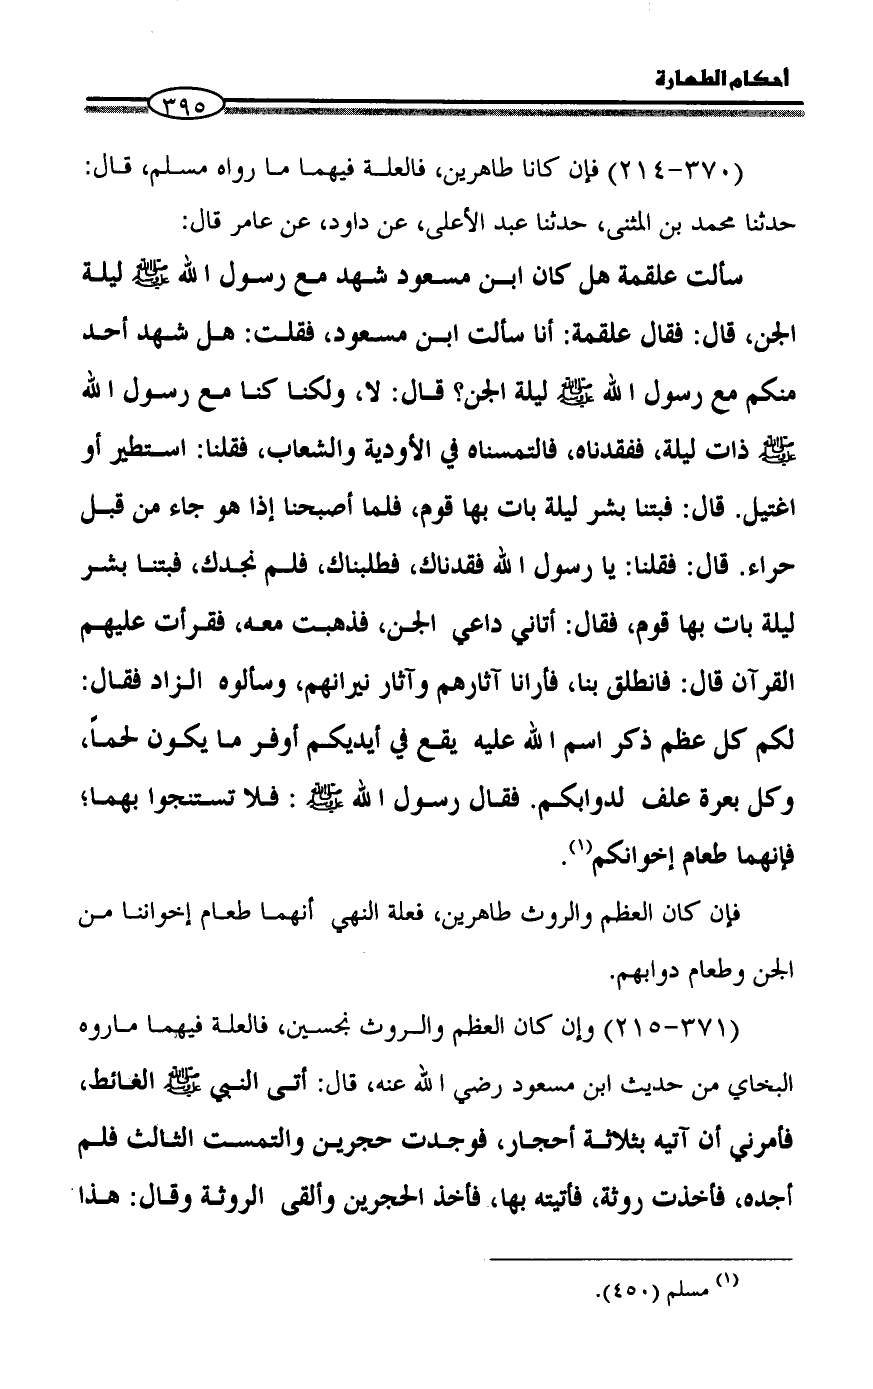 أحكام الطهارة
٣٩٥
(٣٧٠-٢١٤) فإن كانا طاهرين، فالعلة فيهما ما رواه مسلم، قال:
حدثنا محمد بن المثنى، حدثنا عبد الأعلى، عن داود، عن عامر قال:
سألت علقمة هل كان ابن مسعود شهد مع رسول الله ﷺ ليلة
الجن، قال: فقال علقمة: أنا سألت ابن مسعود، فقلت: هل شهد أحد
منكم مع رسول الله ﷺ ليلة الجن؟ قال: لا، ولكنا كنا مع رسول الله
ﷺ ذات ليلة، ففقدناه، فالتمسناه في الأودية والشعاب، فقلنا: استطير أو
اغتيل. قال: فبتنا بشر ليلة بات بها قوم، فلما أصبحنا إذا هو جاء من قبل
حراء. قال: فقلنا: يا رسول الله فقدناك، فطلبناك، فلم نجدك، فبتنا بشر
ليلة بات بها قوم، فقال: أتاني داعي الجن، فذهبت معه، فقرأت عليهم
القرآن قال: فانطلق بنا، فأرانا آثارهم وآثار نيرانهم، وسألوه الزاد فقال:
لكم كل عظم ذكر اسم الله عليه يقع في أيديكم أوفر ما يكون لحماً،
وكل بعرة علف لدوابكم. فقال رسول الله ﷺ : فلا تستنجوا بهما؛
فإنهما طعام إخوانكم(١).
فإن كان العظم والروث طاهرين، فعلة النهي أنهما طعام إخواننا من
الجن وطعام دوابهم.
(٣٧١-٢١٥) وإن كان العظم والروث نجسين، فالعلة فيهما ماروه
البخاي من حديث ابن مسعود رضي الله عنه، قال: أتى النبي ﷺ الغائط،
فأمرني أن آتيه بثلاثة أحجار، فوجدت حجرين والتمست الثالث فلم
أجده، فأخذت روثة، فأتيته بها، فأخذ الحجرين وألقى الروثة وقال: هذا
(١) مسلم (٤٥٠).